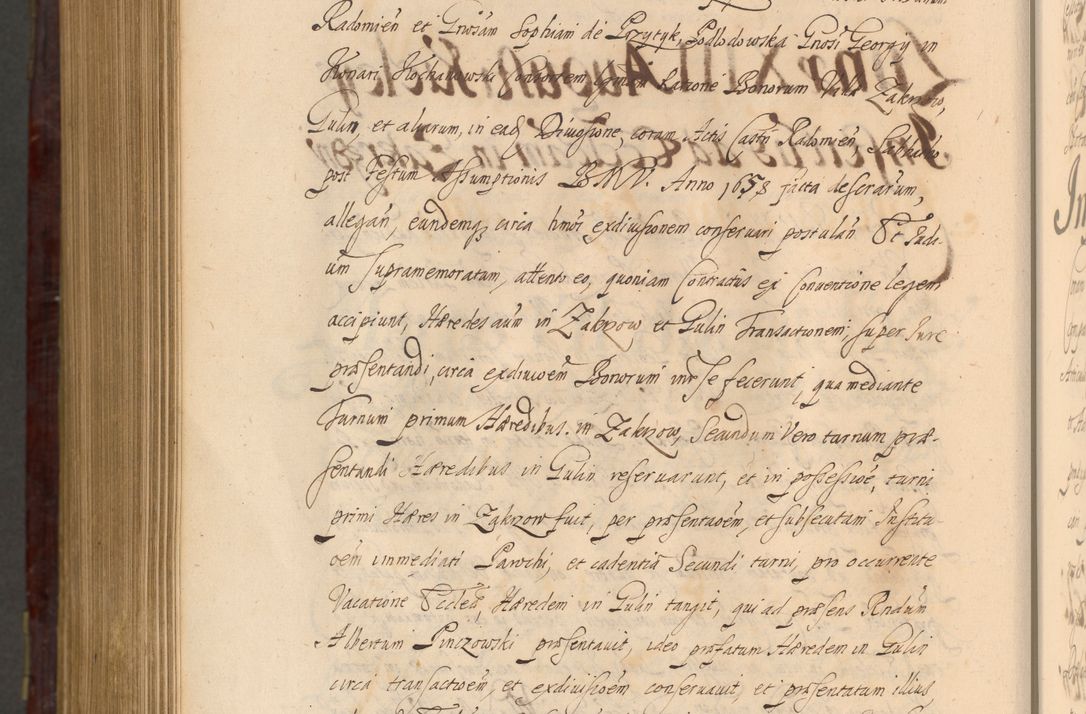 Radomień et Gnosam Sophiam de Przytyk, Podlodowska Gnosi Georgij in
Konari Kochanowski Consortem, ratione Bonorum Villæ Zakrzow,
Gulin, et aliarum, in eadẽ Diuisione, coram Actis Castri Radomień, Sabbatho
post Festum Assumptionis B.M.V. Anno 1658 juxta deserarum,
allegań, eundemq; circa hmõi exdiuisionem conseruari postulań Et Iudi-
um supramemoratam, attento eo, quoniam Contractus ex Conuentione legem
accipiunt, Hæredes aũm in Zakrzow et Gulin Transactionem, super Iure
præsentandi, circa exdiuioẽm Bonorum inter se fecerunt, qua mediante
Turnum primum Hæredibus in Zakrzow, Secundum Vero turnum præ-
sentandi Hæredibus in Gulin reseruarunt, et in possessioẽ, turni
primi Hæres in Zakrzow fuit, per præsentaoẽm, et subsecutam Institu-
oẽm immediati Parochi, et cadentia Secundi turni, pro occurrente
Vacatione Ecclæ, Hæredem in Gulin tangit, qui ad præsens Rndũm
Albertum Pinczowski præsentauit, ideo præfatum Hæredem in Gulin
circa transactioẽm, et exdiuisioẽm conseruauit, et præsentatum illius